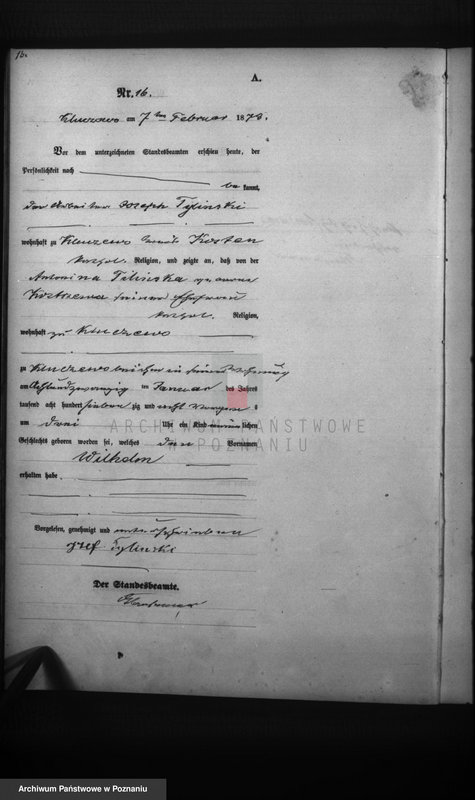 16.
A.
Nr. 16.
am 7ten Februar 1878.
Vor dem unterzeichneten Standesbeamten erschien heute, der
Persönlichkeit nach
bekannt,
der Arbeiter Joseph Tylinski
wohnhaft zu Kluczewo Kreis Kosten
kathol. Religion, und zeigte an, daß von der
Antonina Tilinska geborene
seiner Ehefrau
kathol. Religion,
wohnhaft zu Kluczewo
zu Kluczewo bei ihm in seiner Wohnung
am Achtundzwanzig ten Januar des Jahres
tausend acht hundert sieben zig und acht Morgens
um drei Uhr ein Kind männlichen
Geschlechts geboren worden sei, welches den Vornamen
erhalten habe
Vorgelesen, genehmigt und unterschrieben
Jósef Tylinski
Der Standesbeamte.
ARCHIWUM PAŃSTWOWE
W POZNANIU
Archiwum Państwowe w Poznaniu